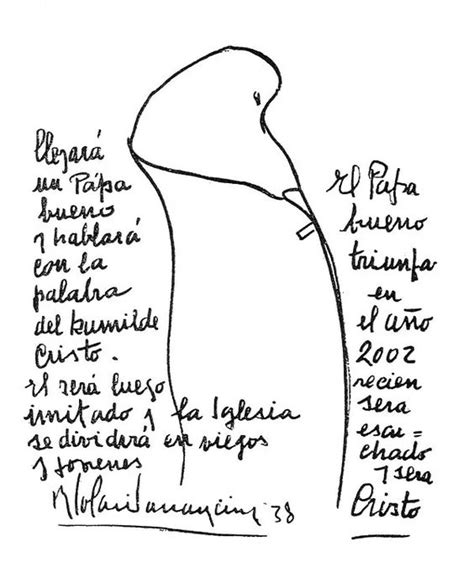 llegará
un Pápa
bueno
y hablará
con la
palabra
del humilde
Cristo.
El será luego
imitado y la Iglesia
se dividirá en viejos
y jovenes
'38
El Papa
bueno
triunfa
en
el año
2002
recien
sera
escu=
chado
y sera
Cristo